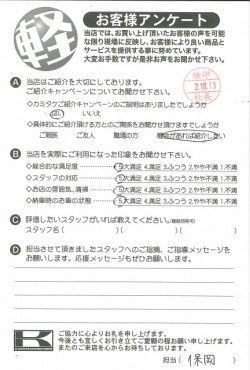 軽
お客様アンケート
当店では、お買い上げ頂いたお客様の声を可能
な限り現場に反映し、お客様により良い商品と
サービスを提供する事に努めています。
大変お手数ですが是非お声をお聞かせ下さい。
Ⓐ 当店はご紹介を大切にしております。
ご紹介キャンペーンについてお聞かせ下さい。
◇カミタケご紹介キャンペーンのご説明はありましたでしょうか
はい いいえ
◇具体的にご紹介頂ける方とのご関係をお聞かせ頂けますでしょうか
ご親族 ご友人 職場の方 機会があれば紹介したい
検印
2.10.13
社長
Ⓑ 当店を実際にご利用になった印象をお聞かせ下さい。
◇総合的な満足度 5大満足 4.満足 3.ふつう 2.やや不満 1.不満
◇スタッフの対応 5大満足 4.満足 3.ふつう 2.やや不満 1.不満
◇お店の雰囲気、清掃 5大満足 4.満足 3.ふつう 2.やや不満 1.不満
◇納車時のお車の状態 5大満足 4.満足 3.ふつう 2.やや不満 1.不満
Ⓒ 評価したいスタッフがいれば教えてください。(複数回答可)
スタッフ名( )( )( )
Ⓓ 担当させて頂きましたスタッフへのご指摘、ご指導メッセージを
お願いします。応援メッセージもぜひお願いします。
K
ご協力に心よりお礼を申し上げます。
今後とも宜しくお引き立てご愛顧の程お願い申し上げます。
またのご来店を心からお待ちしております。
担当( 保岡 )